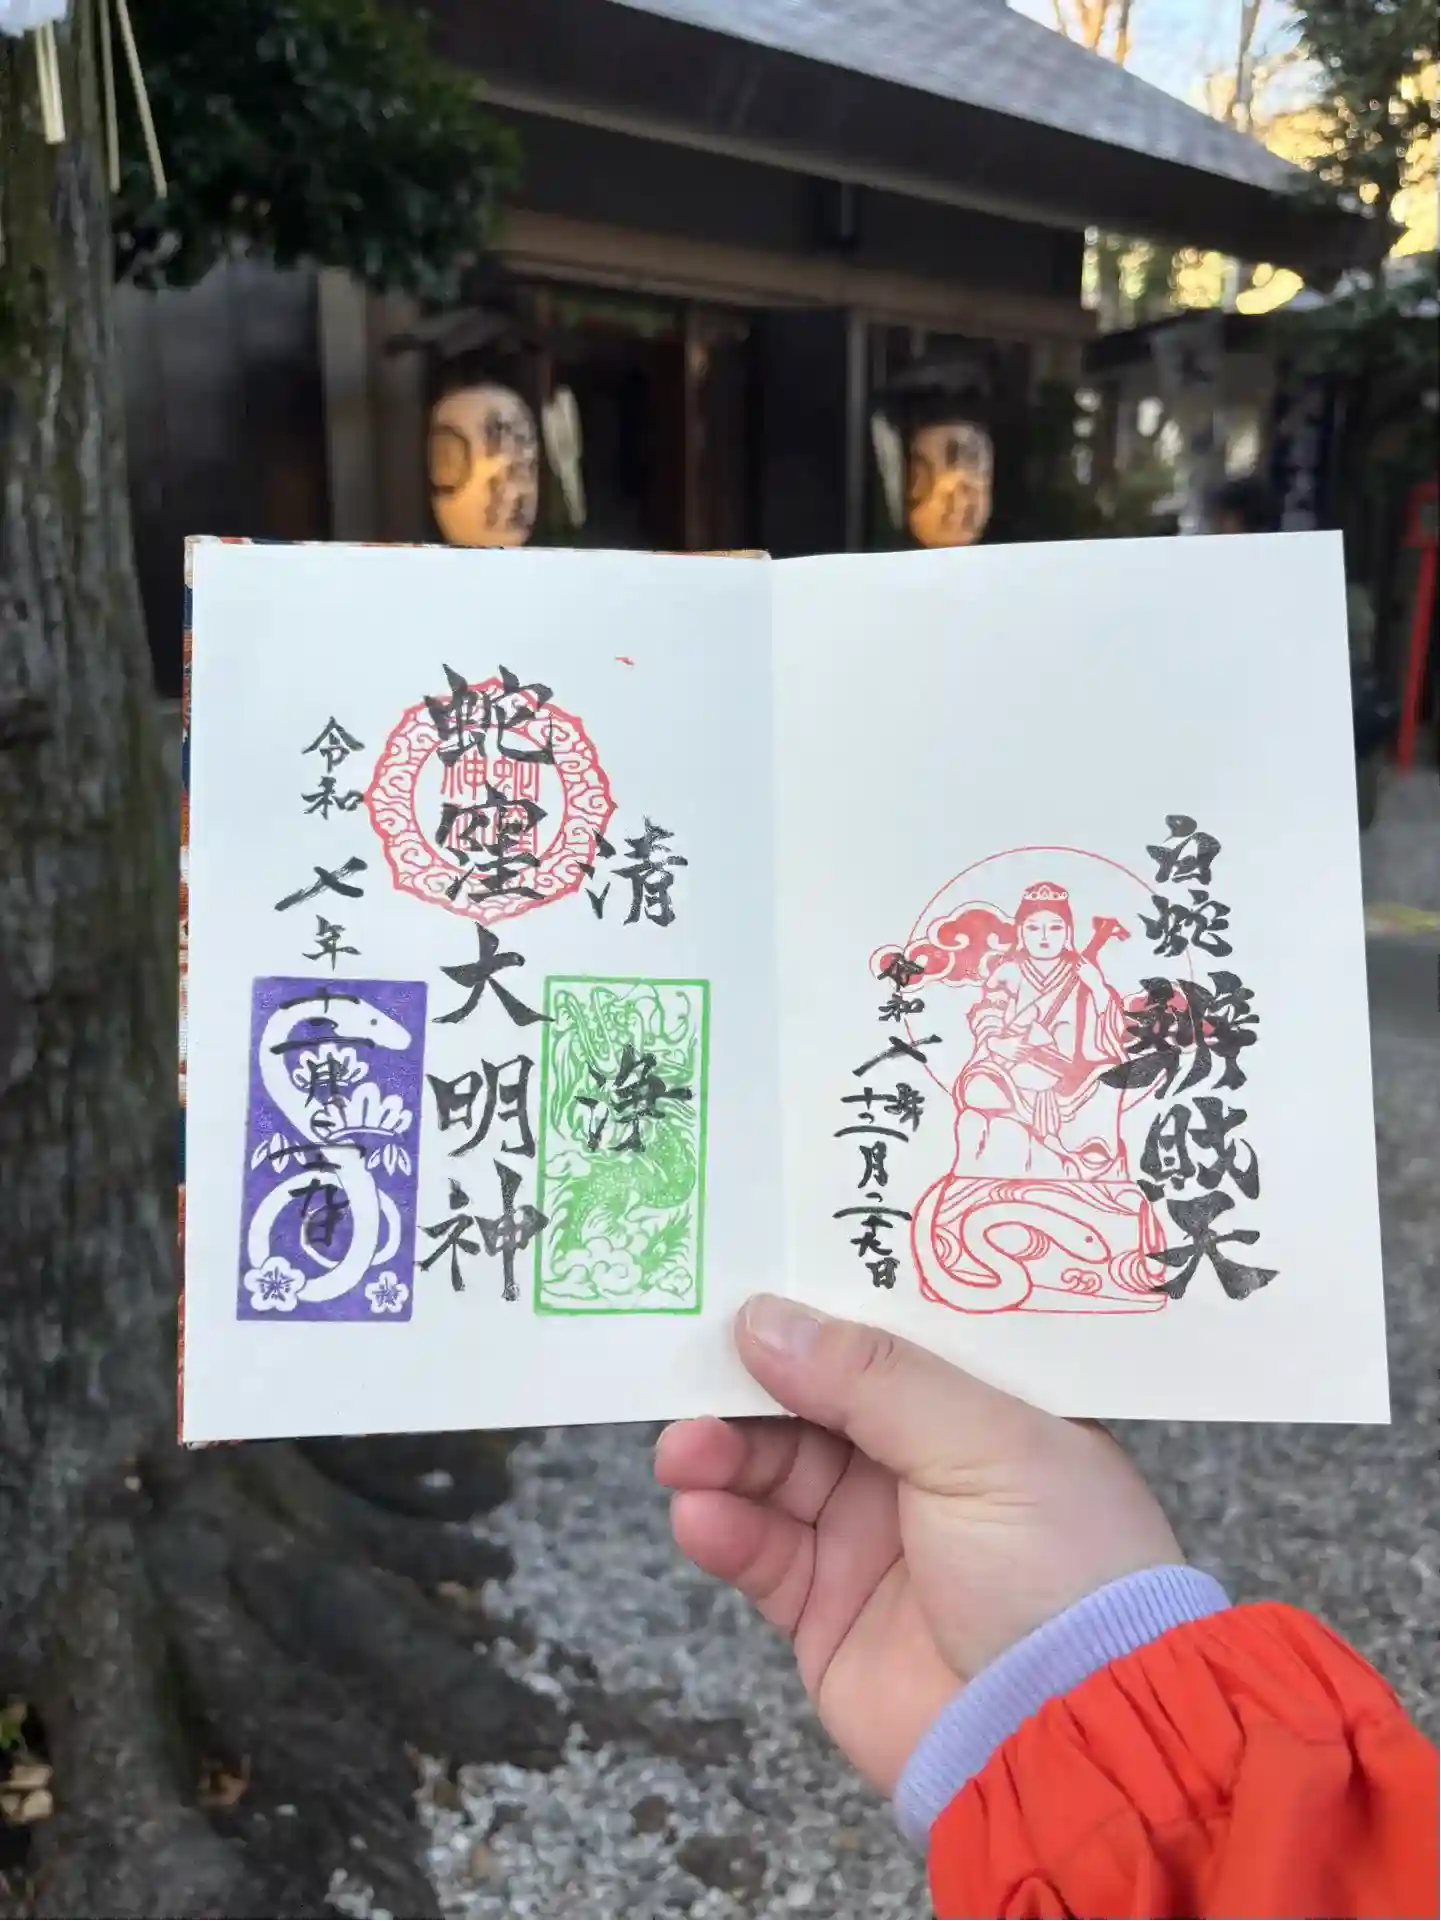 清
浄
蛇窪大明神
蛇窪
神社
令和七年十二月二十九日
白蛇辨財天
令和七年十二月二十九日